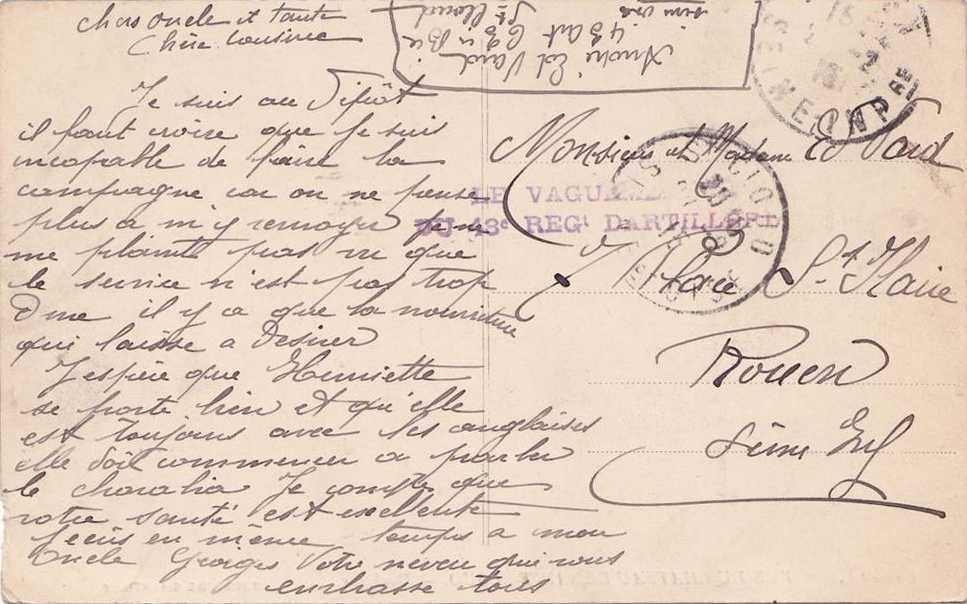 Chers oncle et tante
Chère cousine
Je suis au Dépôt
il faut croire que je suis
incapable de faire la
campagne car on ne pense
plus a m'y renvoyer je ne
me plaints pas vu que
le service n'est pas trop
Dure il y a que la nourriture
qui laisse a Desirer
J'espère que Henriette
se porte bien et qu'elle
est toujours avec les anglaises
elle doit commencer a parler
le charabia Je compte que
votre santé est excellente
J'écris en même temps a mon
Oncle Georges Votre neveu qui vous
embrasse tous
43 Art
St Cloud
LE VAGUEMESTRE
DU 43e REGt D'ARTILLERIE
SEINE-INFRE
Monsieur et Madame Ed Vard
7 Place St Hilaire
Rouen
Seine Inf